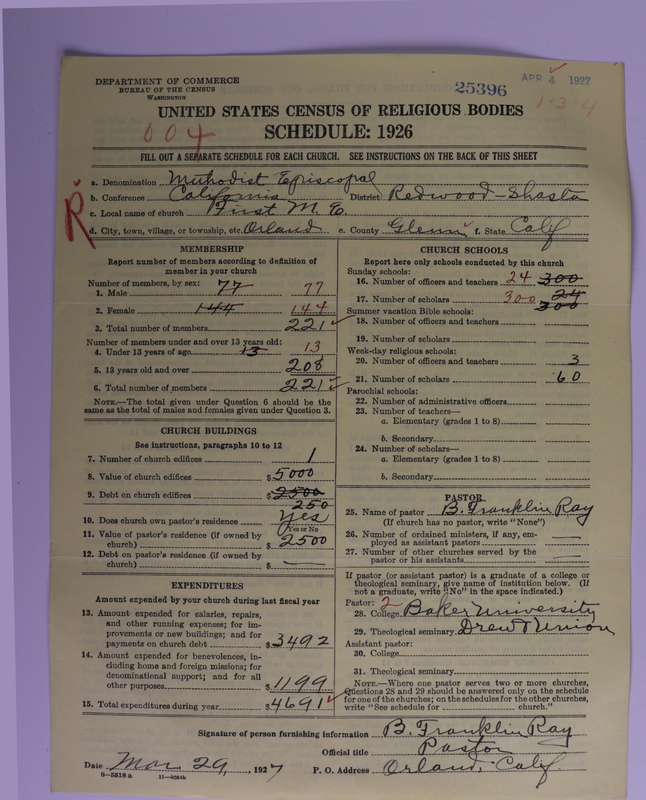 DEPARTMENT OF COMMERCE
BUREAU OF THE CENSUS
WASHINGTON
25396
APR 4 1927
1-3-4
UNITED STATES CENSUS OF RELIGIOUS BODIES
SCHEDULE: 1926
004
FILL OUT A SEPARATE SCHEDULE FOR EACH CHURCH. SEE INSTRUCTIONS ON THE BACK OF THIS SHEET
R
a. Denomination Methodist Episcopal
b. Conference California District Redwood-Shasta
c. Local name of church First M. E.
d. City, town, village, or township, etc. Orland e. County Glenn f. State Calif
MEMBERSHIP
Report number of members according to definition of
member in your church
Number of members, by sex:
1. Male 77 77
2. Female 144 144
3. Total number of members 221
Number of members under and over 13 years old:
4. Under 13 years of age 13 13
5. 13 years old and over 208
6. Total number of members 221
NOTE.—The total given under Question 6 should be
same as the total of males and females given under Question 3.
CHURCH BUILDINGS
See instructions, paragraphs 10 to 12
7. Number of church edifices 1
8. Value of church edifices $5000
9. Debt on church edifices $2500
250
10. Does church own pastor's residence Yes
Yes or No
11. Value of pastor's residence (if owned by
church) $2500
12. Debt on pastor's residence (if owned by
church) $ —
EXPENDITURES
Amount expended by your church during last fiscal year
13. Amount expended for salaries, repairs,
and other running expenses; for im-
provements or new buildings; and for
payments on church debt $3492
14. Amount expended for benevolences, in-
cluding home and foreign missions; for
denominational support; and for all
other purposes $1199
15. Total expenditures during year $4691
CHURCH SCHOOLS
Report here only schools conducted by this church
Sunday schools:
16. Number of officers and teachers 24 300
17. Number of scholars 300 24
300
Summer vacation Bible schools:
18. Number of officers and teachers
19. Number of scholars
Week-day religious schools:
20. Number of officers and teachers 3
21. Number of scholars 60
Parochial schools:
22. Number of administrative officers
23. Number of teachers—
a. Elementary (grades 1 to 8)
b. Secondary
24. Number of scholars—
a. Elementary (grades 1 to 8)
b. Secondary
PASTOR
25. Name of pastor B. Franklin Ray
(If church has no pastor, write "None")
26. Number of ordained ministers, if any, em-
ployed as assistant pastors —
27. Number of other churches served by the
pastor or his assistants —
If pastor (or assistant pastor) is a graduate of a college or
theological seminary, give name of institution below. (If
not a graduate, write "No" in the space indicated.)
Pastor: 2
28. College Baker University
29. Theological seminary Drew & Union
Assistant pastor:
30. College
31. Theological seminary
NOTE.—Where one pastor serves two or more churches,
Questions 28 and 29 should be answered only on the schedule
for one of the churches; on the schedules for the other churches,
write "See schedule for church."
Signature of person furnishing information B. Franklin Ray
Official title Pastor
Date Mar 29, 1927 P. O. Address Orland, Calif.
8-5518 a 11-9064b